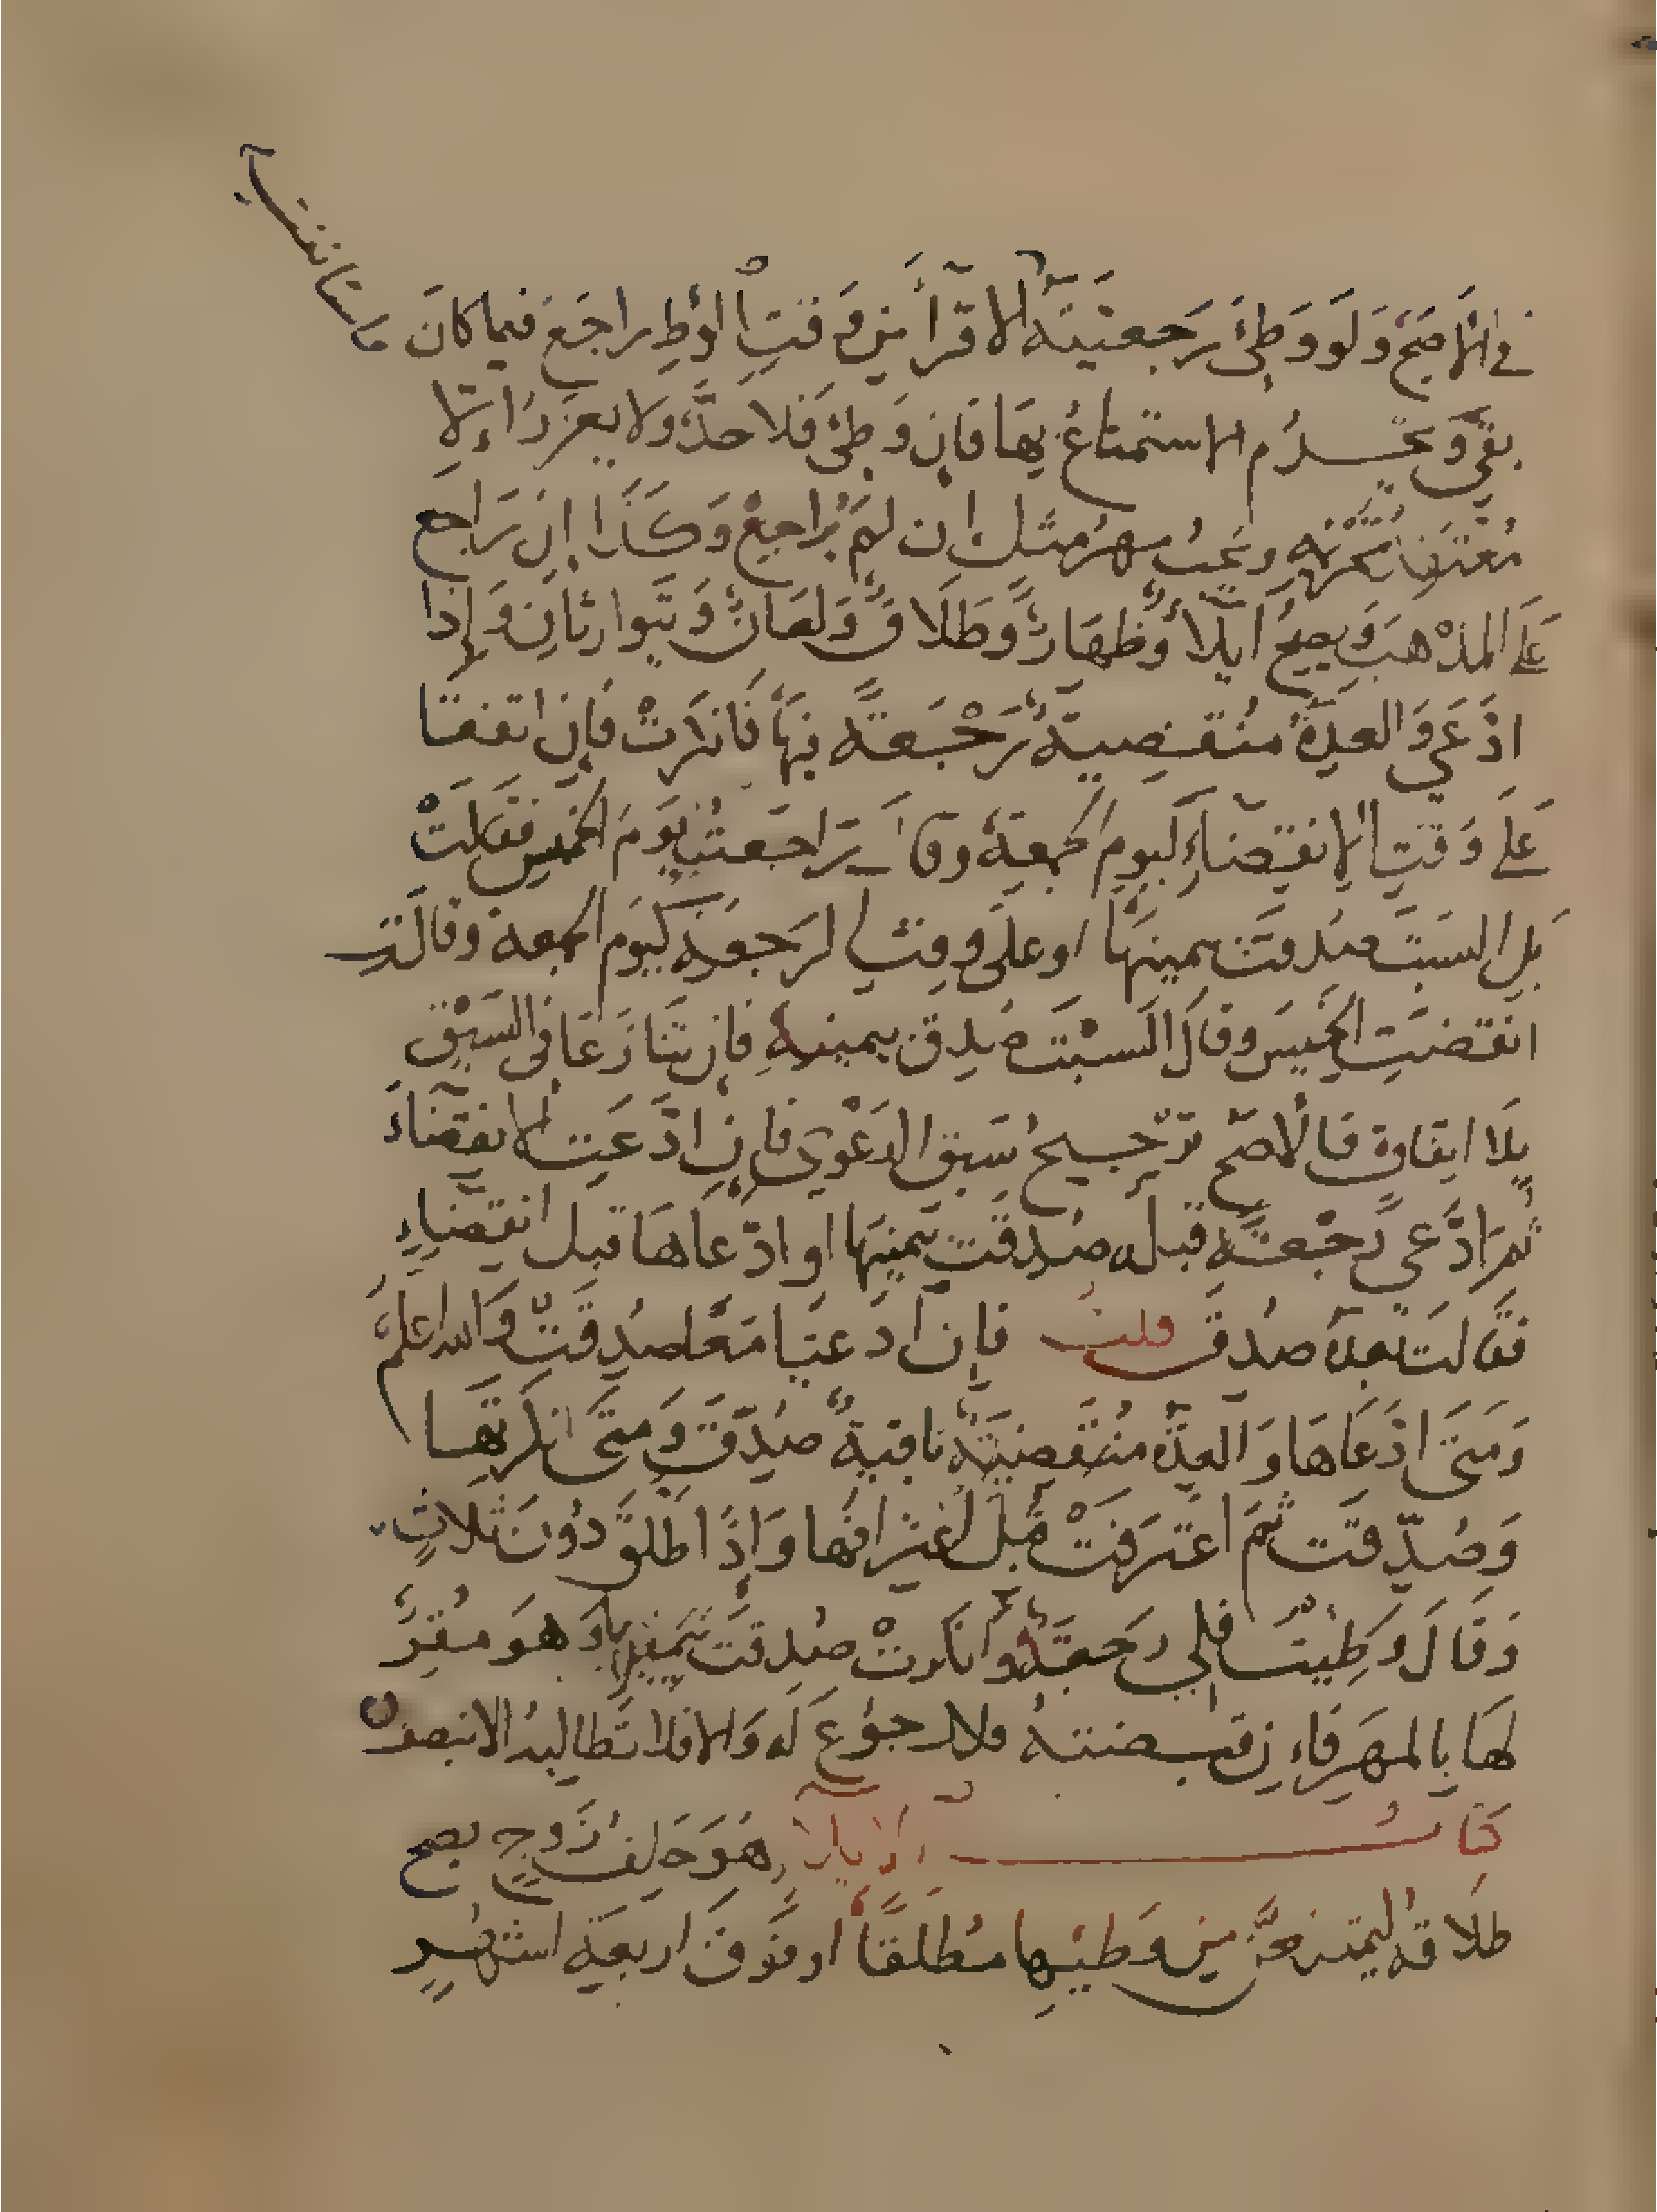 واستانفت
في الاصح وَلَو وَطِئَ رَجعيَّتَهُ الاقرآ من وَقتِ الوَطِ راجَعَ فيما كانَ
بقي وَيحرُم الاستمتاعُ بِهَا فَاِن وَطِئ فَلا حَدَّ وَلا يعزرُ اِلا
مُعتقد تحريمه ويجبُ مهرُ مثل ان لم يُراجع وَكَذَا اِن رَاجع
عَلَى المذْهب وَيصح ايلآ وَظهَارٌ وَطَلَاق وَلعَانٌ وَيتوارثانِ وَاِذا
ادَّعَى وَالعِدة مُنقضِية رَجْعَة فيهَا فَانكرَتْ فَاِن اتفقا
عَلَى وَقتِ الاِنقِضاءِ كَيومِ الجمعةِ وقال رَاجَعتُ يَومَ الخميس فقالتْ
بل السبت صُدقت بيمينهَا او على وقت الرجعَة كيَوم الجمعة وقالت
انقضت الخميسَ وقالَ السبْتَ صُدِق بيمينه فاِن تنَازَعَا في السَبْق
بِلَا اتفاق فالاصح ترْجيحُ سَبق الدعْوى فاِن ادَّعَت الانقضاءَ
ثم ادَّعى رَجعَة قبله صُدقت بيمينها او ادّعاهَا قبل انقضاءِ
فقَالت بعدَهُ صُدق قلتُ فاِن ادعيَا مَعًا صدِقَتْ وَالله اعلم
وَمتَى ادّعَاهَا وَالعدة منقضيَة باقية صُدق وَمتَى انكرتهَا
وَصُدّقَت ثم اعتَرفَتْ قُبلَ اعترافها وَاِذَا طلق دُونَ ثلاثٍ
وَقالَ وَطِيت فلي رَجعَة وَانكرتْ صُدقت بيمين وَهوَ مُقِرٌّ
لهَا بالمهر فَاِن قبضته فلا رجُوعَ له وَالا فلا تطالبهُ الا بنصف
كتابُ الايلآ هُوَ حَلفُ زَوج يصح
طَلاقهُ ليمتنعَنَّ من وَطئِها مُطلقًا او فوقَ اربعَةِ اشهُرٍ